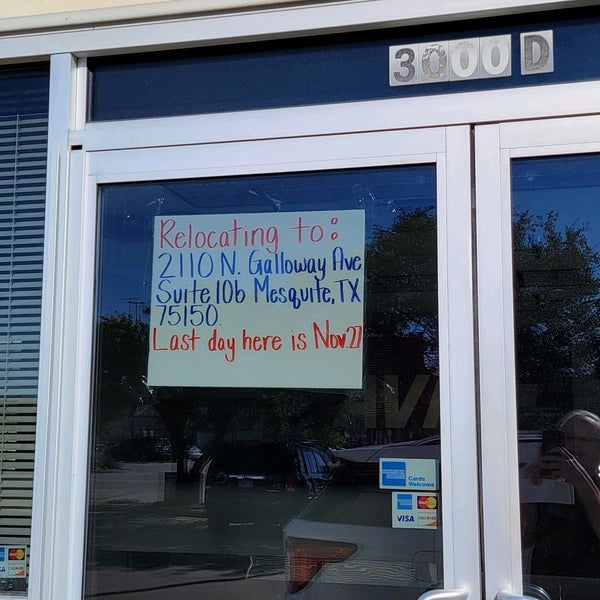 3000D
Relocating to:
2110 N. Galloway Ave
Suite 106 Mesquite, TX
75150
Last day here is Nov. 27
AMERICAN EXPRESS
Cards
Welcome
VISA
DISCOVER
VISA
DISCOVER